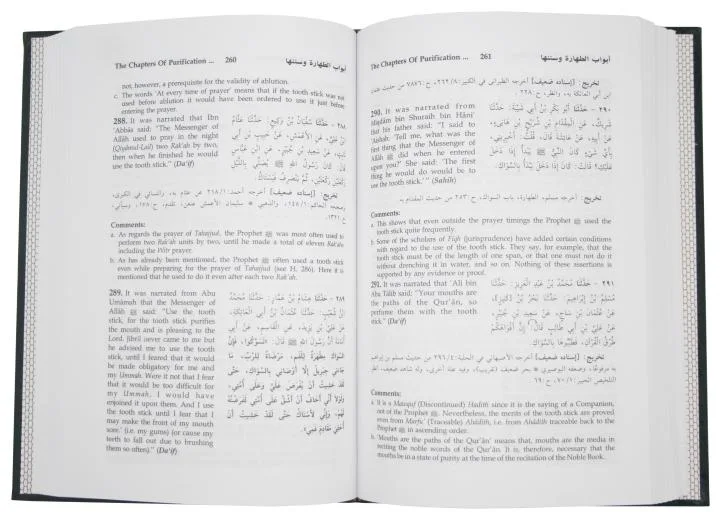 The Chapters Of Purification ... 260 أبواب الطهارة وسننها
not, however, a prerequisite for the validity of ablution.
c. The words 'At every time of prayer' means that if the tooth stick was not
used before ablution it would have been ordered to use it just before
entering the prayer.
288. It was narrated that Ibn
'Abbâs said: "The Messenger of
Allâh ﷺ used to pray in the night
(Qiyâmul-Lail) two Rak'ah by two,
then when he finished he would
use the tooth stick." (Da'îf)
٢٨٨- حَدَّثَنَا سُفْيَانُ بْنُ وَكِيعٍ: حَدَّثَنَا عَثَّامُ
بْنُ عَلِيٍّ، عَنِ الأَعْمَشِ، عَنْ حَبِيبِ بْنِ أَبِي
ثَابِتٍ، عَنْ سَعِيدِ بْنِ جُبَيْرٍ، عَنِ ابْنِ عَبَّاسٍ
قَالَ: كَانَ رَسُولُ اللهِ ﷺ يُصَلِّي بِاللَّيْلِ
رَكْعَتَيْنِ رَكْعَتَيْنِ، ثُمَّ يَنْصَرِفُ فَيَسْتَاكُ.
تخريج: [إسناده ضعيف] أخرجه أحمد: ٢١٨/١ عن عثام به، والنسائي في الكبرى،
Comments:
a. As regards the prayer of Tahajjud, the Prophet ﷺ was most often used to
perform two Rak'ah units by two, until he made a total of eleven Rak'ahs
including the Witr prayer.
b. As has already been mentioned, the Prophet ﷺ often used a tooth stick
even while preparing for the prayer of Tahajjud (see H. 286). Here it is
mentioned that he used to do it even after each two Rak'ah.
289. It was narrated from Abu
Umâmah that the Messenger of
Allâh ﷺ said: "Use the tooth
stick, for the tooth stick purifies
the mouth and is pleasing to the
Lord. Jibrîl never came to me but
he advised me to use the tooth
stick, until I feared that it would
be made obligatory for me and
my Ummah. Were it not that I fear
that it would be too difficult for
my Ummah, I would have
enjoined it upon them. And I use
the tooth stick until I fear that I
may make the front of my mouth
sore.' (i.e. my gums) (or cause my
teeth to fall out due to brushing
them so often)." (Da'îf)
٢٨٩- حَدَّثَنَا هِشَامُ بْنُ عَمَّارٍ: حَدَّثَنَا مُحَمَّدُ
ابْنُ شُعَيْبٍ: حَدَّثَنَا عُثْمَانُ بْنُ أَبِي الْعَاتِكَةِ،
عَنْ عَلِيِّ بْنِ يَزِيدَ، عَنِ الْقَاسِمِ، عَنْ أَبِي
أُمَامَةَ أَنَّ رَسُولَ اللهِ ﷺ قَالَ: «تَسَوَّكُوا، فَإِنَّ
السِّوَاكَ مَطْهَرَةٌ لِلْفَمِ، مَرْضَاةٌ لِلرَّبِّ، مَا
جَاءَنِي جِبْرِيلُ إِلَّا أَوْصَانِي بِالسِّوَاكِ، حَتَّى
لَقَدْ خَشِيتُ أَنْ يُفْرَضَ عَلَيَّ وَعَلَى أُمَّتِي،
وَلَوْلَا أَنِّي أَخَافُ أَنْ أَشُقَّ عَلَى أُمَّتِي لَفَرَضْتُهُ
لَهُمْ، وَإِنِّي لَأَسْتَاكُ حَتَّى لَقَدْ خَشِيتُ أَنْ
أُحْفِيَ مَقَادِمَ فَمِي».
The Chapters Of Purification ... 261 أبواب الطهارة وسننها
تخريج: [إسناده ضعيف] أخرجه الطبراني في الكبير: ٢٦٢/٨، ح: ٧٨٧٦ من حديث عثمان
290. It was narrated from
Miqdâm bin Shuraih bin Hâni'
that his father said: "I said to
'Aishah: 'Tell me, what was the
first thing that the Messenger of
Allâh ﷺ did when he entered
upon you?' She said: 'The first
thing he would do would be to
use the tooth stick.'" (Sahîh)
٢٩٠- حَدَّثَنَا أَبُو بَكْرِ بْنُ أَبِي شَيْبَةَ: حَدَّثَنَا
شَرِيكٌ، عَنِ الْمِقْدَامِ بْنِ شُرَيْحِ بْنِ هَانِئٍ،
عَنْ أَبِيهِ، عَنْ عَائِشَةَ، قَالَ: قُلْتُ: أَخْبِرِينِي
بِأَيِّ شَيْءٍ كَانَ النَّبِيُّ ﷺ يَبْدَأُ إِذَا دَخَلَ
عَلَيْكِ؟ قَالَتْ: كَانَ إِذَا دَخَلَ يَبْدَأُ بِالسِّوَاكِ.
تخريج: أخرجه مسلم، الطهارة، باب السواك، ح: ٢٥٣ من حديث المقدام به
Comments:
a. This shows that even outside the prayer timings the Prophet ﷺ used the
tooth stick quite frequently.
b. Some of the scholars of Fiqh (jurisprudence) have added certain conditions
with regard to the use of the tooth stick. They say, for example, that the
tooth stick must be of the length of one span, or that one must not do it
without drenching it in water, and so on. Nothing of these assertions is
supported by any evidence or proof.
291. It was narrated that 'Ali bin
Abu Tâlib said: "Your mouths are
the paths of the Qur'ân, so
perfume them with the tooth
stick." (Da'îf)
٢٩١- حَدَّثَنَا مُحَمَّدُ بْنُ عَبْدِ الْعَزِيزِ: حَدَّثَنَا
مُسْلِمُ بْنُ إِبْرَاهِيمَ: حَدَّثَنَا بَحْرُ بْنُ كَنِيزٍ،
عَنْ عُثْمَانَ بْنِ سَاجٍ، عَنْ سَعِيدِ بْنِ جُبَيْرٍ،
عَنْ عَلِيِّ بْنِ أَبِي طَالِبٍ قَالَ: إِنَّ أَفْوَاهَكُمْ
طُرُقٌ لِلْقُرْآنِ، فَطَيِّبُوهَا بِالسِّوَاكِ.
تخريج: [إسناده ضعيف] أخرجه الأصبهاني في الحلية: ٢٩٦/٤ من حديث مسلم بن إبراهيم
Comments:
a. It is a Mauquf (Discontinued) Hadîth since it is the saying of a Companion,
not of the Prophet ﷺ. Nevertheless, the merits of the tooth stick are proved
even from Marfu' (Traceable) Ahâdîth, i.e. from Ahâdîth traceable back to the
Prophet ﷺ in ascending order.
b. 'Mouths are the paths of the Qur'ân' means that, mouths are the media in
reciting the noble words of the Qur'ân. It is, therefore, necessary that the
mouths be in a state of purity at the time of the recitation of the Noble Book.